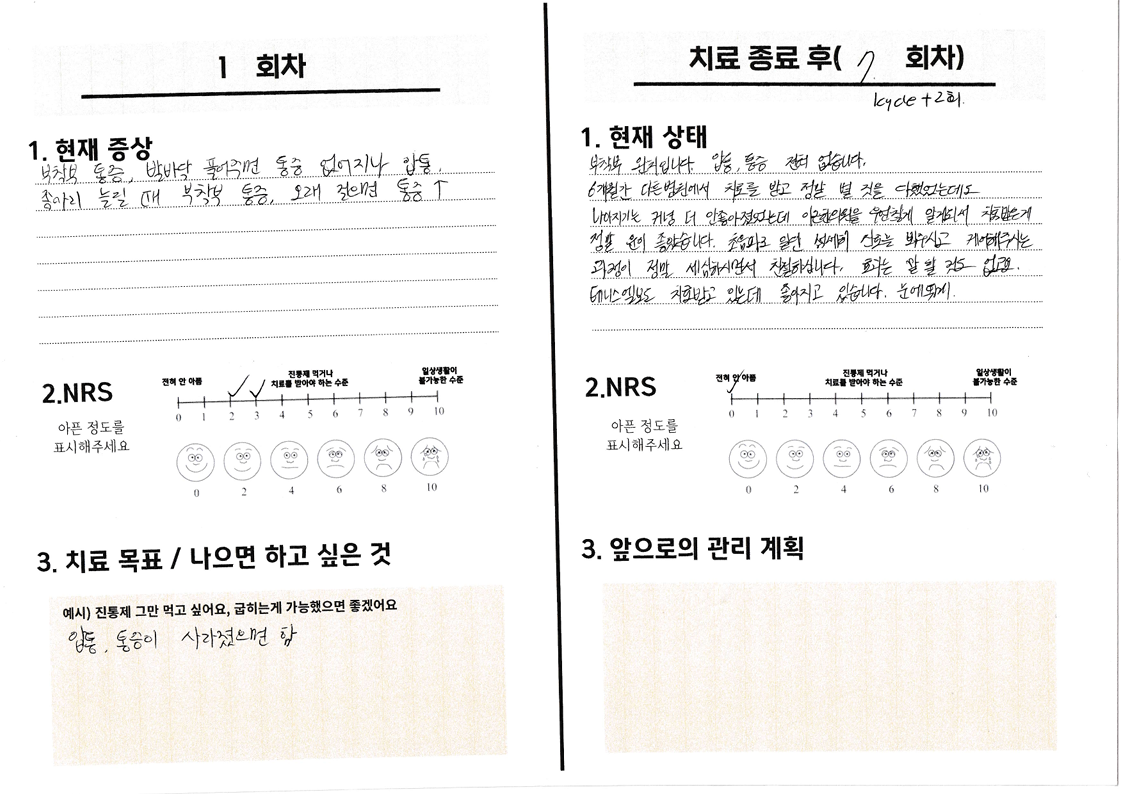 1 회차
1. 현재 증상
부착부 통증, 발바닥 풀어주면 통증 없어지나 압통.
종아리 늘릴 때 부착부 통증, 오래 걸으면 통증 ↑
2.NRS
아픈 정도를
표시해주세요
전혀 안 아픔
진통제 먹거나
치료를 받아야 하는 수준
일상생활이
불가능한 수준
0 1 2 3 4 5 6 7 8 9 10
0 2 4 6 8 10
3. 치료 목표 / 나으면 하고 싶은 것
예시) 진통제 그만 먹고 싶어요, 굽히는게 가능했으면 좋겠어요
압통, 통증이 사라졌으면 함
치료 종료 후( 7 회차)
1cycle +2회.
1. 현재 상태
부착부 완치입니다. 압통, 통증 전혀 없습니다.
6개월간 다른병원에서 치료를 받고 정말 별 것을 다했었는데도
나아지기는 커녕 더 안좋아졌었는데 우연찮게 알게되서 치료받은게
정말 운이 좋았습니다. 일단 섬세히 봐주시고 케어해주시는
과정이 정말 세심하시면서 친절하십니다. 효과는 말 할 것도 없고요.
테니스엘보도 치료받고 있는데 좋아지고 있습니다. 눈에띄게.
2.NRS
아픈 정도를
표시해주세요
전혀 안 아픔
진통제 먹거나
치료를 받아야 하는 수준
일상생활이
불가능한 수준
0 1 2 3 4 5 6 7 8 9 10
0 2 4 6 8 10
3. 앞으로의 관리 계획